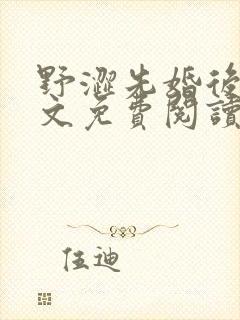 野澀先婚後
文免費閱讀
伍迪